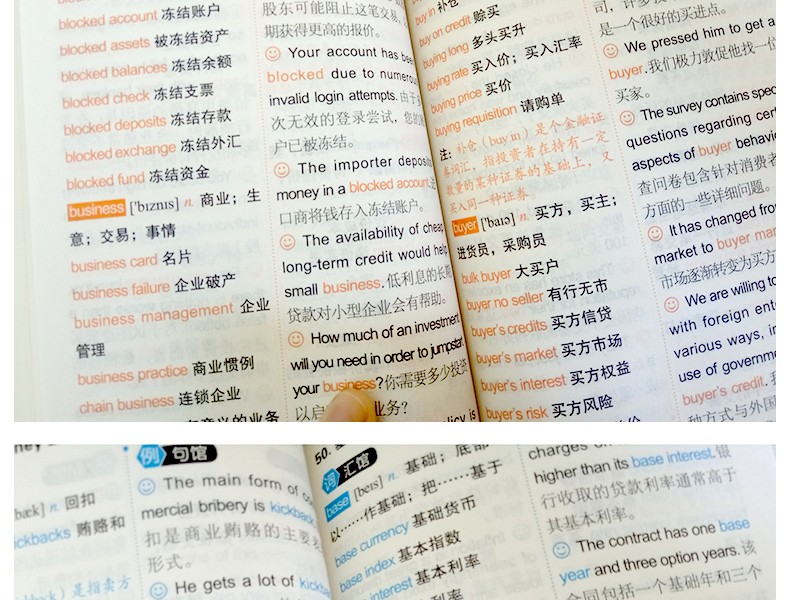 blocked account 冻结账户
blocked assets 被冻结资产
blocked balances 冻结余额
blocked check 冻结支票
blocked deposits 冻结存款
blocked exchange 冻结外汇
blocked fund 冻结资金
business ['bɪznɪs] n. 商业；生
意；交易；事情
business card 名片
business failure 企业破产
business management 企业
管理
business practice 商业惯例
chain business 连锁企业
股东可能阻止这笔交易,
期获得更高的报价。
Your account has been
blocked due to numerous
invalid login attempts. 由于
次无效的登录尝试，您的
户已被冻结。
The importer deposits
money in a blocked account.
口商将钱存入冻结账户。
The availability of cheap
long-term credit would help
small business. 低利息的长期
贷款对小型企业会有帮助。
How much of an investment
will you need in order to jumpstart
your business? 你需要多少投资
以启 业务?
buy in 补仓
buy on credit 赊买
buying long 多头买升
buying rate 买入价；买入汇率
buying price 买价
buying requisition 请购单
注: 补仓（buy in）是个金融证
券词汇，指投资者在持有一定
数量的某种证券的基础上，又
买入同一种证券。
buyer ['baɪə] n. 买方，买主；
进货员，采购员
bulk buyer 大买户
buyer no seller 有行无市
buyer's credits 买方信贷
buyer's market 买方市场
buyer's interest 买方权益
buyer's risk 买方风险
是一个很好的买进点。
We pressed him to get a
buyer. 我们极力敦促他找一位
买家。
The survey contains
questions regarding
aspects of buyer
查问卷包含针对消费者
方面的一些详细问题。
It has changed from
market to buyer
市场逐渐转变为买方
We are willing to
with foreign
various ways, in
use of
buyer's credit.
种方式与外国
例 句馆
回扣
kickbacks 贿赂和
是指卖方
The main form of
mercial bribery is
扣是商业贿赂的主要
形式。
He gets a lot of
50.
词 汇馆
base [beɪs] n. 基础；底部
以……作基础；把……基于
base currency 基础货币
base index 基本指数
interest 基本利率
charges
higher than its base interest. 银
行收取的贷款利率通常高于
其基本利率。
The contract has one base
year and three option years. 该
合同包括一个基础年和三个